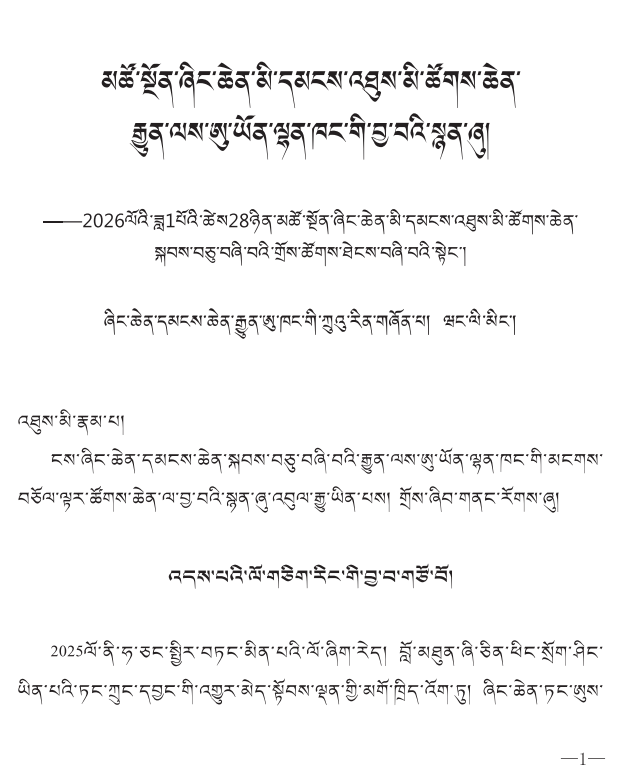 མཚོ་སྔོན་ཞིང་ཆེན་མི་དམངས་འཐུས་མི་ཚོགས་ཆེན་
རྒྱུན་ལས་ཨུ་ཡོན་ལྷན་ཁང་གི་བྱ་བའི་སྙན་ཞུ།
——2026ལོའི་ཟླ1པོའི་ཚེས28ཉིན་མཚོ་སྔོན་ཞིང་ཆེན་མི་དམངས་འཐུས་མི་ཚོགས་ཆེན་
སྐབས་བཅུ་བཞི་བའི་གྲོས་ཚོགས་ཐེངས་བཞི་བའི་སྟེང་།
ཞིང་ཆེན་དམངས་ཆེན་རྒྱུན་ཨུ་ཁང་གི་ཀྲུའུ་རིན་གཞོན་པ།  ཝང་ལི་མིང་།
འཐུས་མི་རྣམ་པ།
ངས་ཞིང་ཆེན་དམངས་ཆེན་སྐབས་བཅུ་བཞི་བའི་རྒྱུན་ལས་ཨུ་ཡོན་ལྷན་ཁང་གི་མངགས་
བཅོལ་ལྟར་ཚོགས་ཆེན་ལ་བྱ་བའི་སྙན་ཞུ་འབུལ་རྒྱུ་ཡིན་པས། གྲོས་ཞིབ་གནང་རོགས་ཞུ།
འདས་པའི་ལོ་གཅིག་རིང་གི་བྱ་བ་གཙོ་བོ།
2025ལོ་ནི་ཧ་ཅང་སྤྱིར་བཏང་མིན་པའི་ལོ་ཞིག་རེད། བློ་མཐུན་ཞི་ཅིན་ཕིང་སྲོག་ཤིང་
ཡིན་པའི་ཏང་ཀྲུང་དབྱང་གི་འགྱུར་མེད་སྟོབས་ལྡན་གྱི་མགོ་ཁྲིད་འོག་ཏུ། ཞིང་ཆེན་ཏང་ཨུས་
—1—